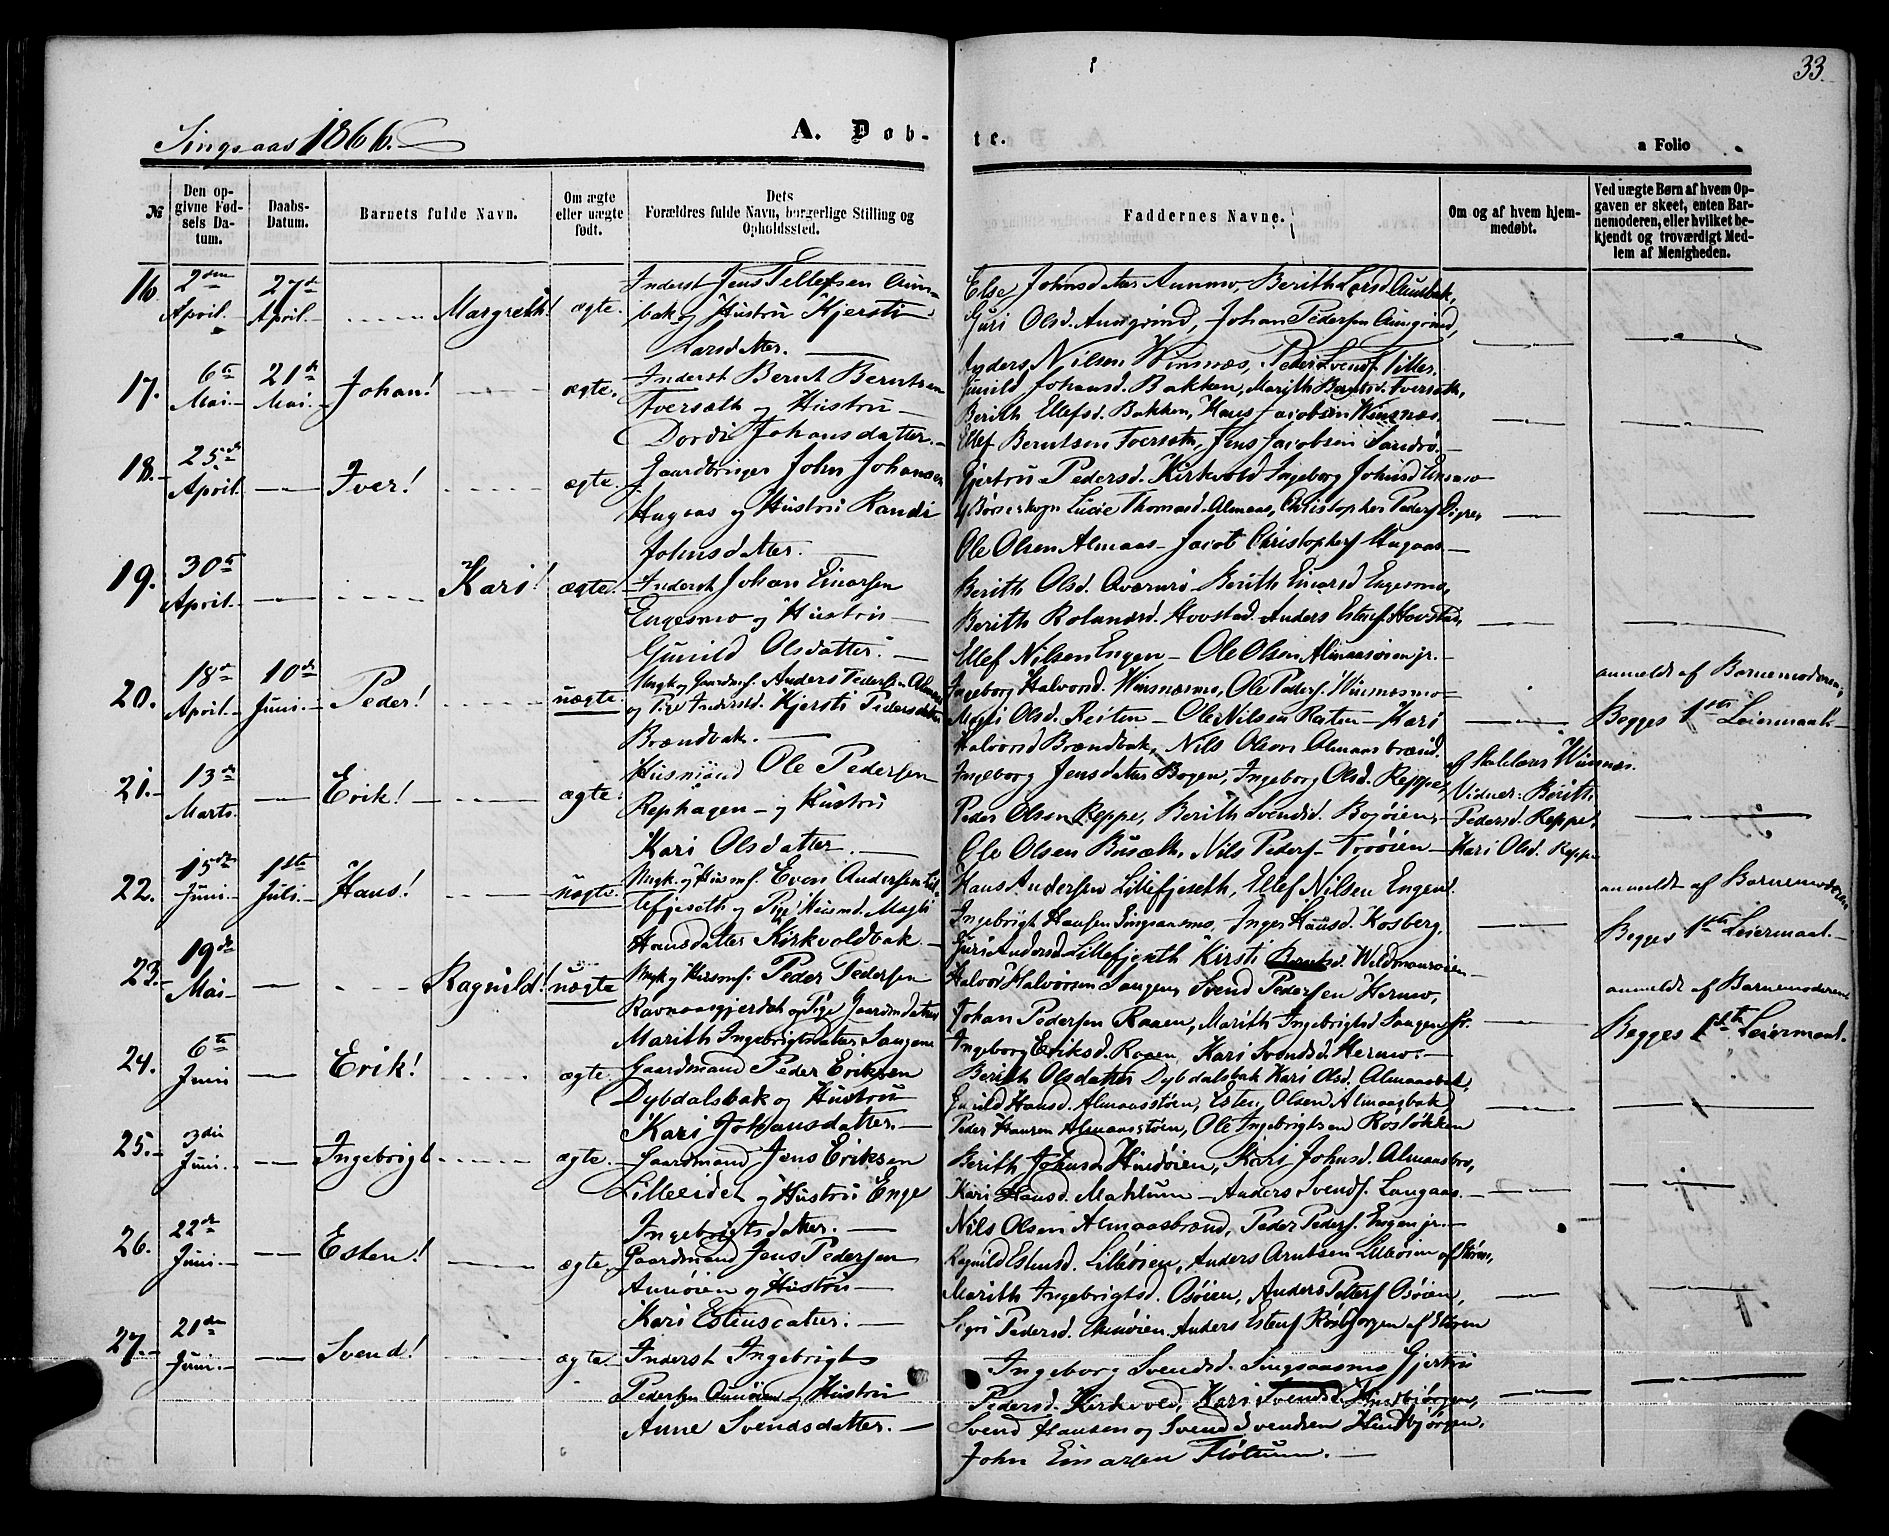 33.
Singsaas 1866.
A. Døb-
te.
a Folio
№
Den op-
givne Fød-
sels Da-
tum.
Daabs-
Datum.
Barnets fulde Navn.
Om ægte
eller uægte
født.
Dets
Forældres fulde Navn, borgerlige Stilling og
Opholdssted.
Faddernes Navne.
Om og af hvem hjem-
medøbt.
Ved uægte Børn af hvem Op-
gaven er skeet, enten Bar-
nemoderen, eller hvilket be-
kjendt og troværdigt Med-
lem af Menigheden.
16. 2den April. 27de April. Margreth! ægte.
Inderst Jens Tellefsen Aun-
bak og Hustru Kjersti
Larsdatter.
Else Johnsdatter Aunmo, Berith Larsd. Aunbak,
Guri Olsd. Aungrind, Johan Pedersen Aungrind,
Anders Nilsen Winsnæs, Peder Svends. Tiller.
17. 6te Mai. 21de Mai. Johan! ægte.
Inderst Bernt Berntsen
Tversæth og Hustru
Dordi Johansdatter.
Gunild Johansd. Bakken, Marith Berntsd. Tversæth,
Berith Ellefsd. Bakken, Hans Jacobsen Winsnæs
Ellef Berntsen Tversæth, Jens Jacobsen Sandrø.
18. 25de April. Iver! ægte.
Gaardbruger John Johansen
Haugaas og Hustru Randi
Johnsdatter.
Gjertru Pedersd. Kirkvold Ingeborg Johnsd.
Lucie Thomasd. Almaas, Christopher Peders. Digre,
Ole Olsen Almaas Jacob Christophers. Haugaas
19. 30te April. Kari! ægte.
Inderst Johan Einarsen
Engesmo og Hustru
Gunild Olsdatter.
Berith Olsd. Berith Einarsd. Engesmo,
Berith Rolandsd. Hovstad, Anders Estens. Hovstad,
Ellef Nilsen Engen Ole Olsen Almaasøien jr.
20. 18de April. 10de Juni. Peder! uægte.
Ungk. og Gaardmf. Anders Pedersen Almaas
og Pige Inderstd. Kjersti Pedersdatter
Brændbak.
Ingeborg Halvorsd. Winsnæsmo, Ole Peders. Winsnæsmo
Marit Olsd. Reiten Ole Nilsen Reiten Kari
Halvorsd. Brændbak, Nils Olsen Almaasbrænd.
anmeldt af Barnemoderen,
Begges 1ste Leiermaal.
21. 13de Marts. Erik! ægte.
Husmand Ole Pedersen
Rephagen og Hustru
Kari Olsdatter.
Ingeborg Jensdatter Bogen, Ingeborg Olsd. Reppe,
Peder Olsen Reppe, Berith Svendsd. Bogøien,
Ole Olsen Busæth, Nils Peders. Troøien
af Winsnæs.
Vidner: Berith
Pedersd. Reppe,
Kari Olsd. Reppe
22. 15de Juni. 1ste Juli. Hans! uægte.
Ungk. og Husmf. Even Andersen Lil-
lefjeseth og Pige Husmd. Marit
Hansdatter Kirkvoldbak
Hans Andersen Lillefjeseth, Ellef Nilsen Engen
Ingebrigt Hansen Singsaasmo, Inger Hansd. Kosberg,
Guri Andersd. Lillefjeseth Kirsti Berntsd. Wildmanøien
anmeldt af Barnemoderen
Begges 1ste Leiermaal.
23. 19de Mai. Ragnild! uægte.
Ungk. og Husmf. Peder Pedersen
Ravnaasgjerdet og Pige Gaardmdatter
Marith Ingebrigtsdatter Laugen
Halvor Halvorsen Laugen, Svend Pedersen Hermo,
Johan Pedersen Raaen, Marith Ingebrigtsd. Laugen,
Ingeborg Eriksd. Raaen, Kari Svendsd. Hermo.
anmeldt af Barnemoderen
Begges 1ste Leiermaal.
24. 6te Juni. Erik! ægte.
Gaardmand Peder Eriksen
Dybdalsbak og Hustru
Kari Johansdatter.
Berith Olsdatter Dybdalsbak Kari Olsd. Almaasbak,
Gunild Hansd. Almaasstøen, Esten Olsen Almaasbak,
Peder Hansen Almaasstøen, Ole Ingebrigtsen Rostøkken
25. 3die Juni. Ingebrigt ægte.
Gaardmand Jens Eriksen
Lilleeidet og Hustru Enge
Ingebrigtsdatter.
Berith Johnsd. Hindøien, Kari Johnsd. Almaasbro,
Kari Hansd. Mahlum Anders Svends. Langaas
Nils Olsen Almaasbrænd, Peder Peders. Engen jr.
26. 22de Juni. Esten! ægte.
Gaardmand Jens Pedersen
Aunøien og Hustru
Kari Estensdatter.
Ragnild Estensd. Lilleøien, Anders Arntsen Lilleøien af Støren,
Marith Ingebrigtsd. Osøien, Anders Petters. Osøien,
Sigri Pedersd. Aunøien, Anders Estens.
27. 21de Juni. Svend! ægte.
Inderst Ingebrigt
Pedersen Aunøien og Hustru
Anne Svendsdatter.
Ingeborg Svendsd. Singsaasmo Gjertru
Pedersd. Kirkvold, Kari Svendsd. Hindbjørgen,
Svend Hansen og Svend Svendsen Hindbjørgen,
John Einarsen Fløttum.